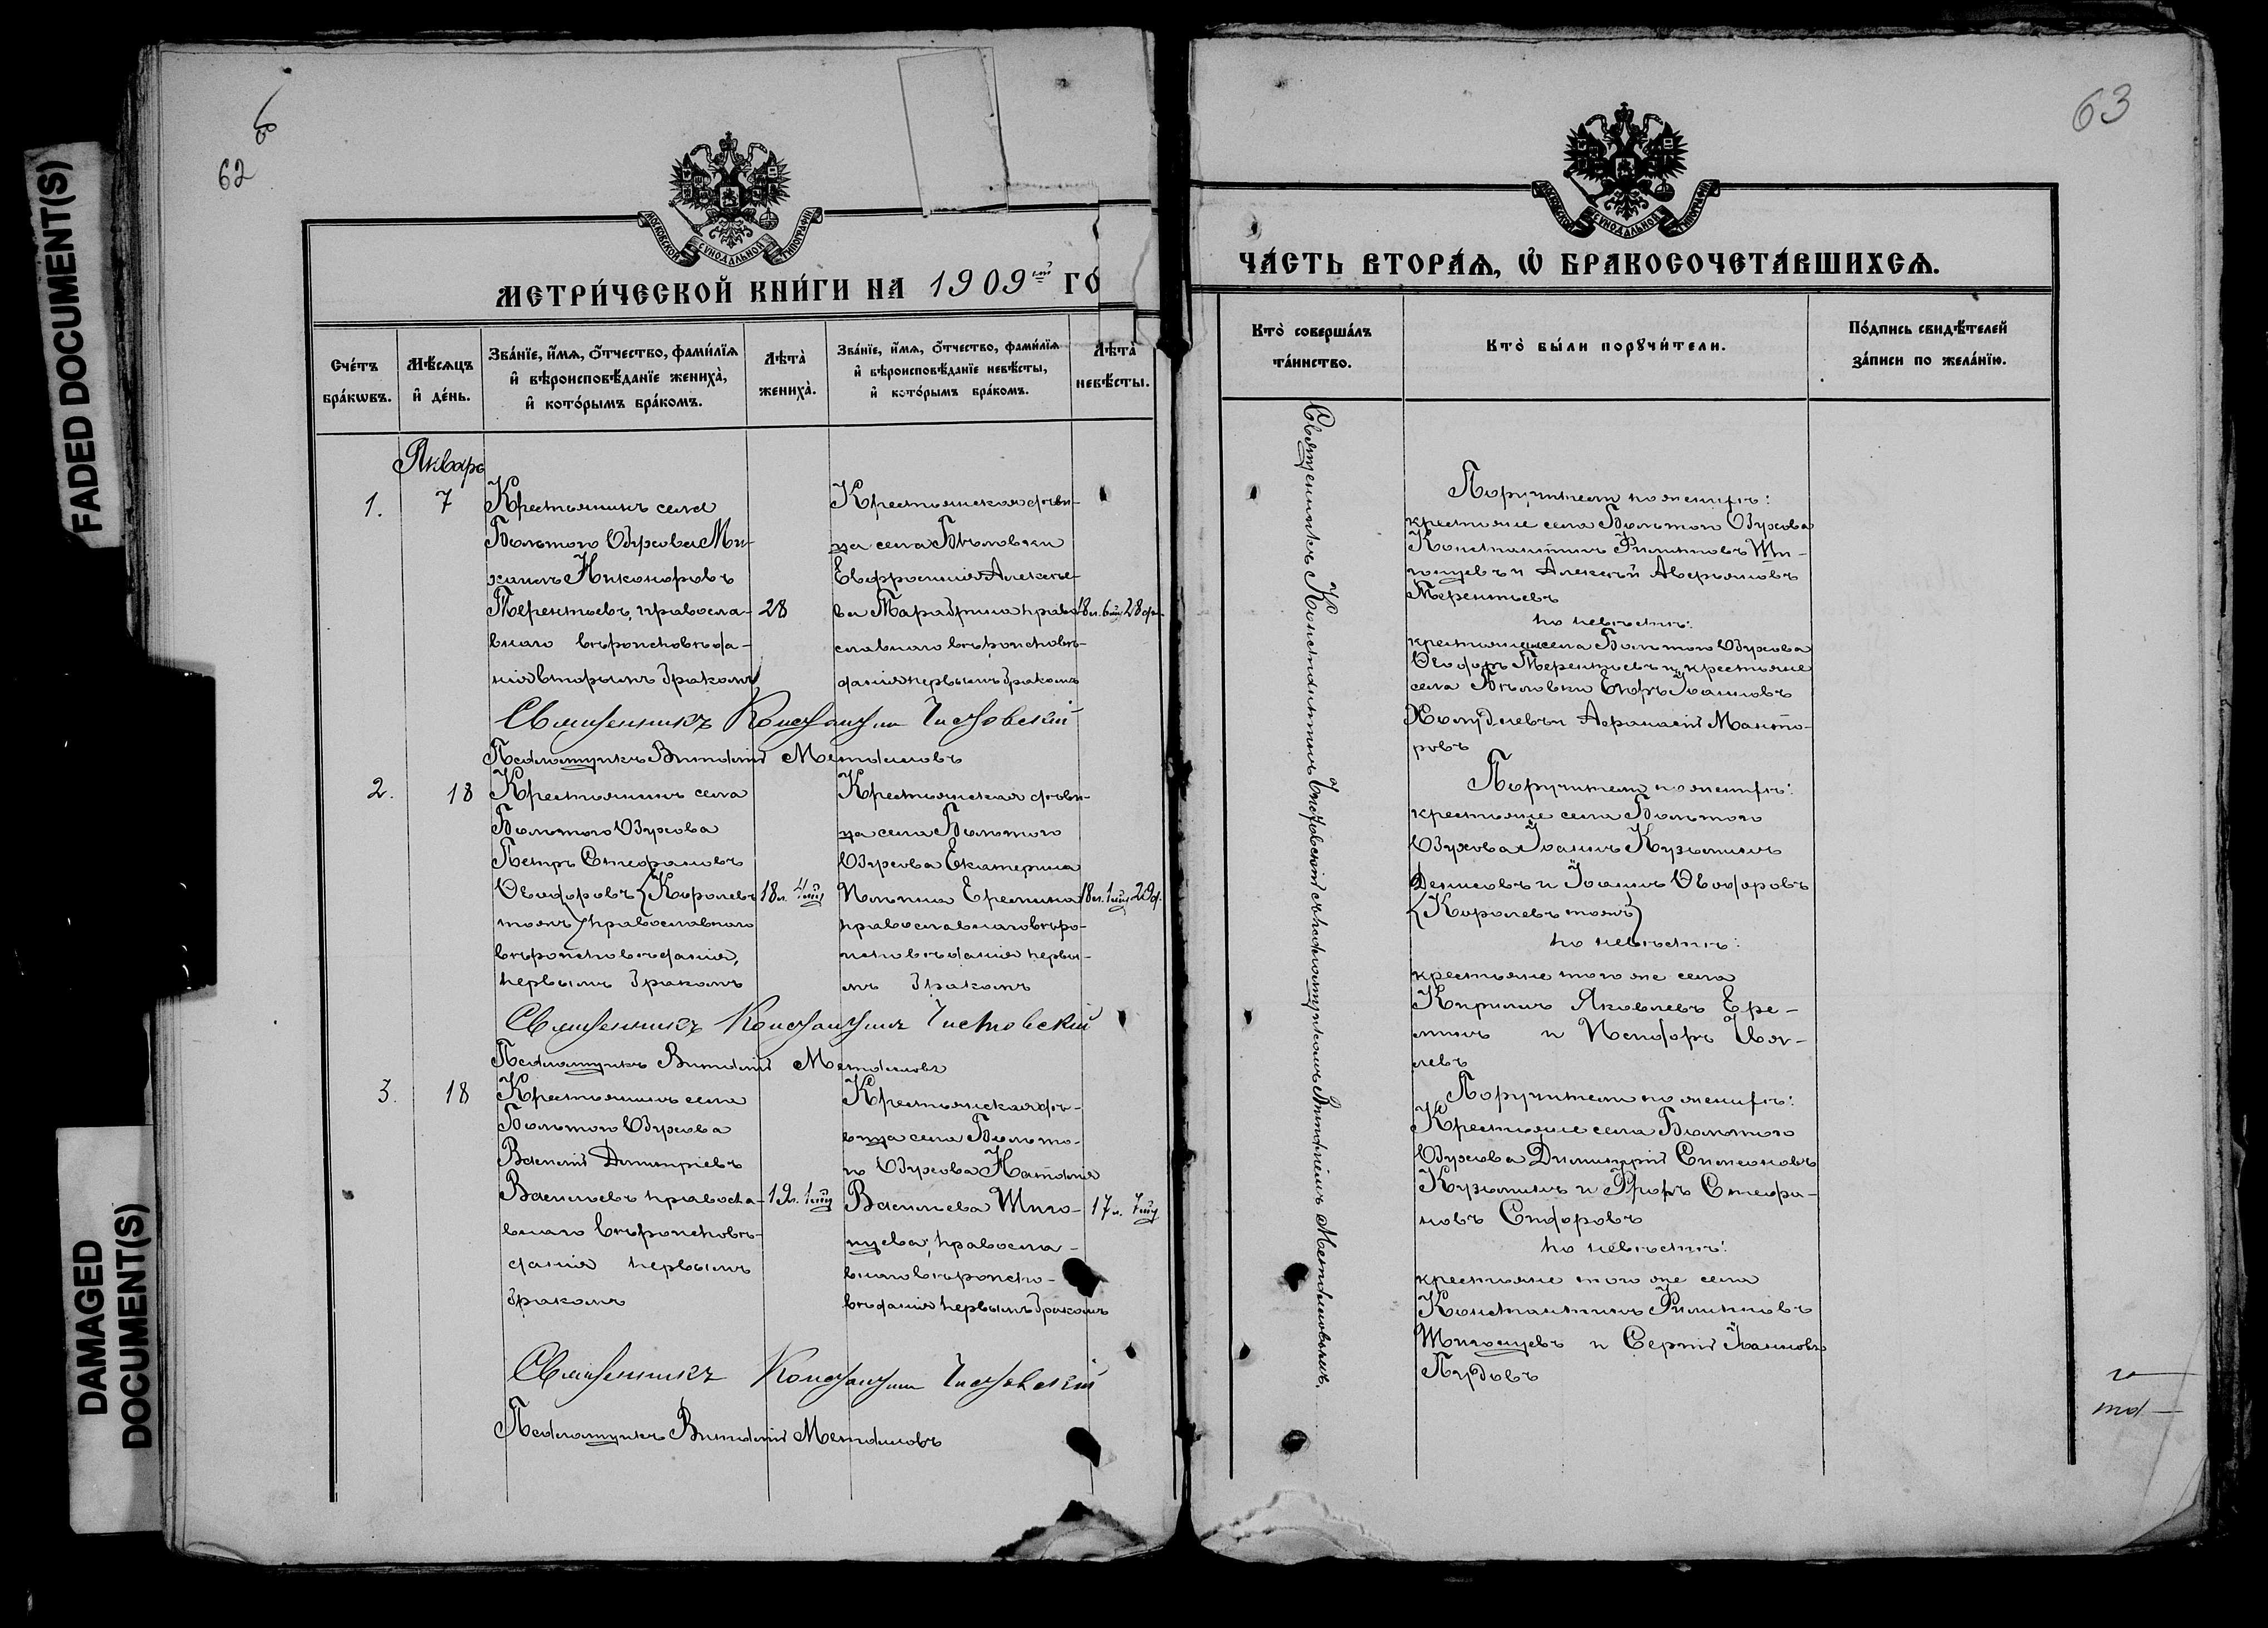 FADED DOCUMENT(S)
DAMAGED
DOCUMENT(S)
62
63
МОСКОВСКОЙ СѴНОДАЛЬНОЙ ТИПОГРАФІИ
МЕТРИ́ЧЕСКОЙ КНИ́ГИ НА 1909й ГО́
Сче́тъ
бра́кѡвъ.
Мѣ́сѧцъ
и҆ де́нь.
Зва́нїе, и҆́мѧ, ѻ҆́тчество, фами́лїѧ
и҆ вѣроисповѣ́данїе жениха̀,
и҆ кото́рымъ бра́комъ.
Лѣта̀
жениха̀.
Зва́нїе, и҆́мѧ, ѻ҆́тчество, фами́лїѧ
и҆ вѣроисповѣ́данїе невѣ́сты,
и҆ кото́рымъ бра́комъ.
Лѣта̀
невѣ́сты.
Январь
1.
7
Крестьянинъ села
Большого Озухова Ми-
хаилъ Никоноровъ
Терентьевъ, правосла-
внаго вѣроисповѣда-
нія вторымъ бракомъ
28
Крестьянская дѣви-
ца села Бѣловки
Евфросинія Алексѣе-
ва православнаго вѣроисповѣ-
данія первымъ бракомъ
18 л. 6 мц 28 дн
Священникъ Константинъ Чистовскій
Псаломщикъ Виталій
2.
18
Крестьянинъ села
Большого Озухова
Петръ Стефановъ
Ѳеодоровъ (Королевъ
тожъ) православнаго
вѣроисповѣданія,
первымъ бракомъ
18 л. 4 мц
Крестьянская дѣви-
ца села Большого
Озухова Екатерина
Еремина
православнаго вѣро-
исповѣданія первы-
мъ бракомъ
18 л. 1 мц 29 д.
Священникъ Константинъ Чистовскій
Псаломщикъ Виталій
3.
18
Крестьянинъ села
Большого Озухова
Василій Димитріевъ
Васильевъ правосла-
внаго вѣроисповѣ-
данія первымъ
бракомъ
19 л. 1 мц
Крестьянская дѣ-
вица села Большо-
го Озухова Наталія
Васильева Шиго-
нцева, правосла-
внаго вѣроиспо-
вѣданія первымъ бракомъ
17 л. 7 мц
Священникъ Константинъ Чистовскій
Псаломщикъ Виталій
МОСКОВСКОЙ СѴНОДАЛЬНОЙ ТИПОГРАФІИ
ЧА́СТЬ ВТОРА́Ѧ, Ѡ҆ БРАКОСОЧЕТА́ВШИХСѦ.
Кто̀ соверша́лъ
та́инство.
Кто̀ бы́ли порꙋчи́тели.
По́дпись свидѣ́телей
за́писи по жела́нїю.
Священникъ Константинъ Чистовскій съ псаломщикомъ Виталіемъ
Поручители по женихѣ:
крестьяне села Большого Озухова
Константинъ Филипповъ Ши-
гонцевъ и Алексѣй Аверьяновъ
Терентьевъ
по невѣстѣ:
крестьяне села Большого Озухова
Ѳеодоръ Терентьевъ и крестьяне
села Бѣловки Іоанновъ
и Афанасій
ровъ
Поручители по женихѣ:
крестьяне села Большого
Озухова Іоаннъ Кузьминъ
Денисовъ и Іоаннъ Ѳеодоровъ
(Королевъ тожъ)
по невѣстѣ:
крестьяне того же села
Кириллъ Яковлевъ Ере-
минъ и
левъ
Поручители по женихѣ:
Крестьяне села Большого
Озухова Димитрій Симеоновъ
Кузьминъ и Стефа-
новъ Сидоровъ
по невѣстѣ:
крестьяне того же села
Константинъ Филипповъ
Шигонцевъ и Сергій Іоанновъ